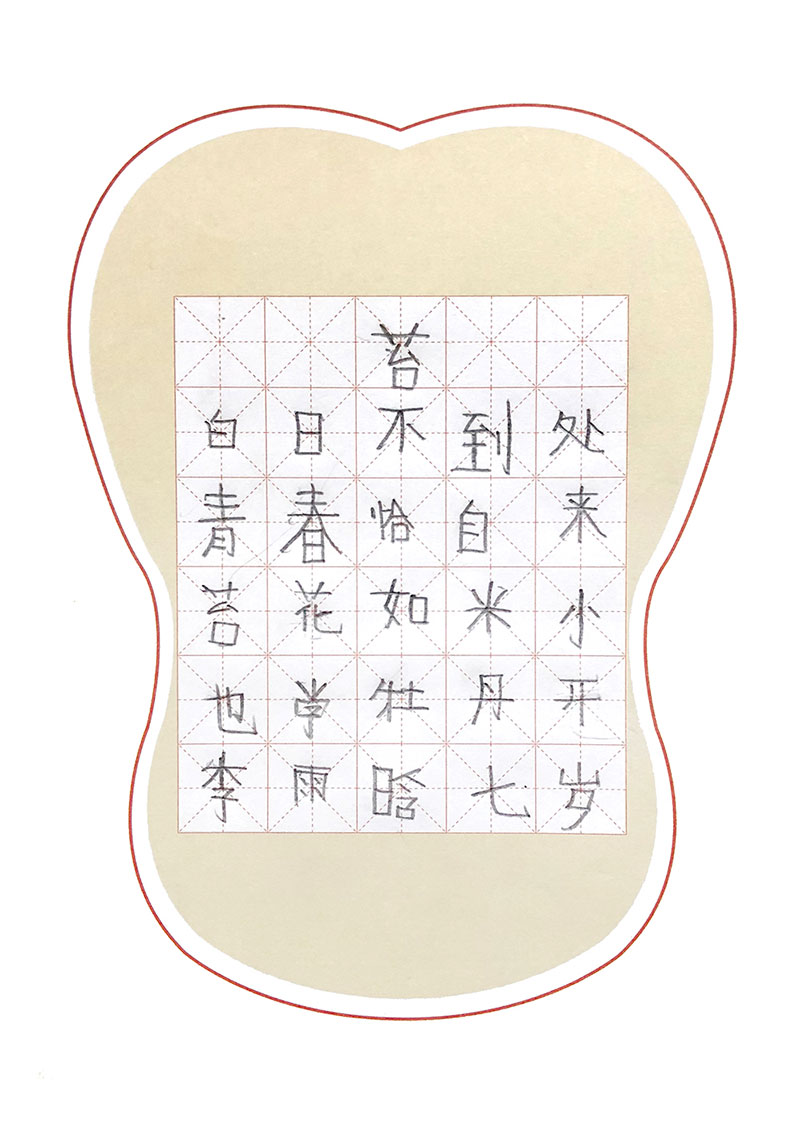 苔
白日不到处
青春恰自来
苔花如米小
也学牡丹开
李雨晗七岁